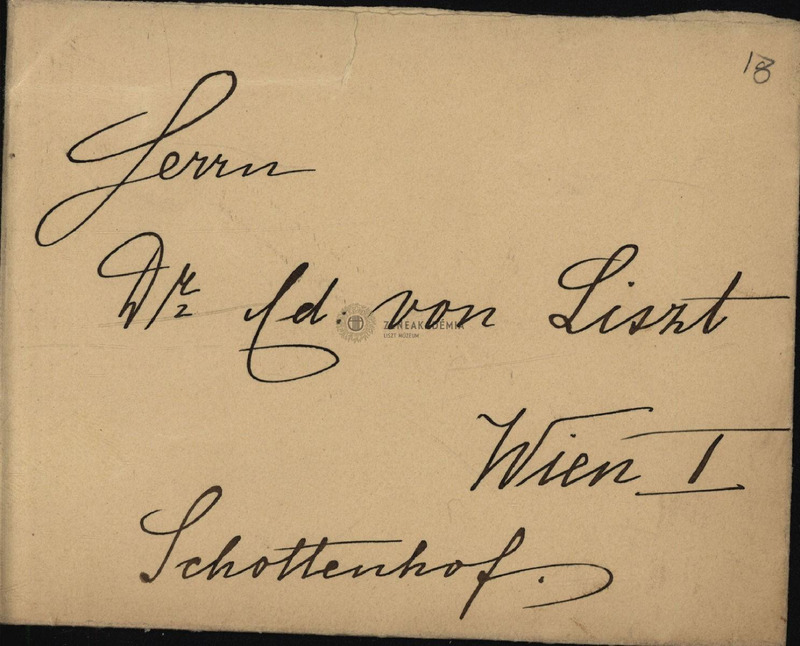 18
Herrn
Dr Ed: von Liszt
ZENEAKADÉMIA
LISZT MÚZEUM
Wien I
Schottenhof.